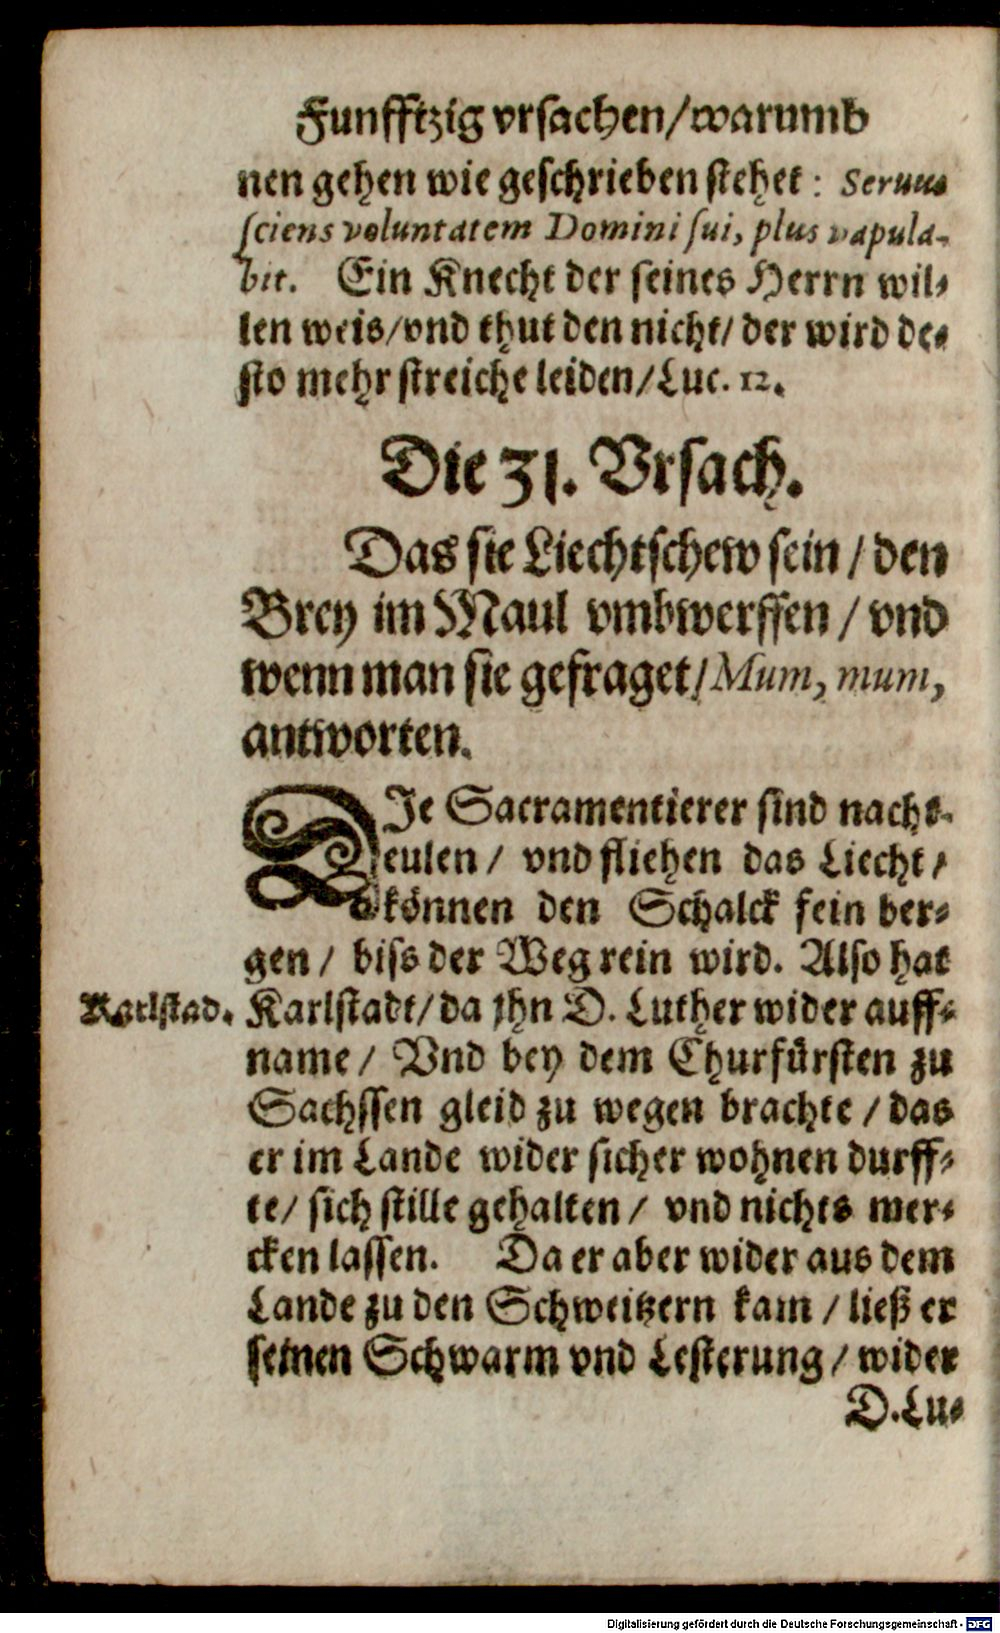 Funfftzig vrsachen/warumb
nen gehen wie geschrieben stehet: Seruus
sciens voluntatem Domini sui, plus vapula-
bit. Ein Knecht der seines Herrn wil-
len weis/vnd thut den nicht/ der wird de-
sto mehr streiche leiden/Luc. 12.
Die 31. Vrsach.
Das sie Liechtschew sein / den
Brey im Maul vmbwerffen / vnd
wenn man sie gefraget/ Mum, mum,
antworten.
DIe Sacramentierer sind nacht-
eulen / vnd fliehen das Liecht /
können den Schalck fein ber-
gen / biss der Weg rein wird. Also hat
Karlstad. Karlstadt/da jhn D. Luther wider auff-
name / Vnd bey dem Churfürsten zu
Sachssen gleid zu wegen brachte / das
er im Lande wider sicher wohnen durff-
te/ sich stille gehalten / vnd nichts mer-
cken lassen. Da er aber wider aus dem
Lande zu den Schweitzern kam / ließ er
seinen Schwarm vnd Lesterung / wider
D. Lu-
Digitalisierung gefördert durch die Deutsche Forschungsgemeinschaft - DFG